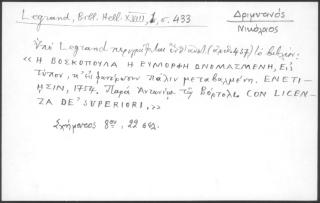 Legrand, Bibl. Hell. XVIII, 1, σ. 433
Δριμυτινός
Νικόλαος
Ὑπὸ Legrand περιγράφεται (ἀριθ. 457) τὸ βιβλίον:
« Η ΒΟΣΚΟΠΟΥΛΑ Η ΕΥΜΟΡΦΗ ΩΝΟΜΑΣΜΕΝΗ, Εἰς
Τύπον, πάλιν μεταβαλμένη. ΕΝΕΤΙ-
ΗΣΙΝ, 1754. Παρὰ Ἀντωνίῳ τῷ Βόρτολι. CON LICEN-
ZA DE' SUPERIORI, »
Σχήματος 8ον, 22 σελ.